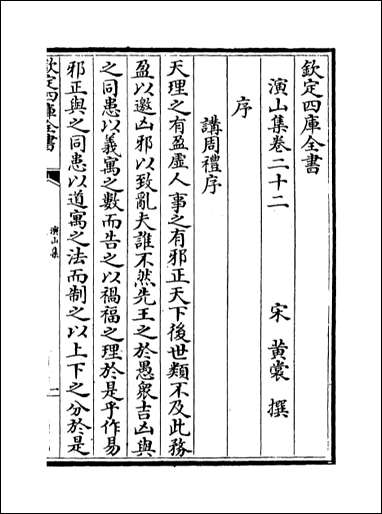 欽定四庫全書
演山集卷二十二
宋 黃裳 撰
序
講周禮序
天理之有盈虛人事之有邪正天下後世類不及此務
盈以邀凶邪以致亂夫誰不然先王之於愚衆吉凶與
之同患以義寓之數而告之以禍福之理於是乎作易
邪正與之同患以道寓之法而制之以上下之分於是
欽定四庫全書
演山集